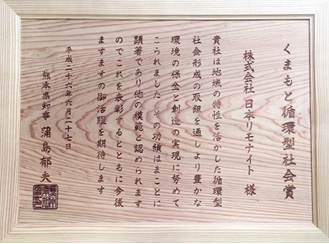 くまもと循環型社会賞
株式会社 日本リモナイト 様
貴社は地域の特性を活かした循環型
社会形成の取組を通しより豊かな
環境の保全と創造の実現に努めて
こられましたその功績はまことに
顕著であり他の模範と認められます
のでこれを表彰するとともに今後
ますますの御活躍を期待します
平成二十六年六月二十七日
熊本県知事 蒲島郁夫